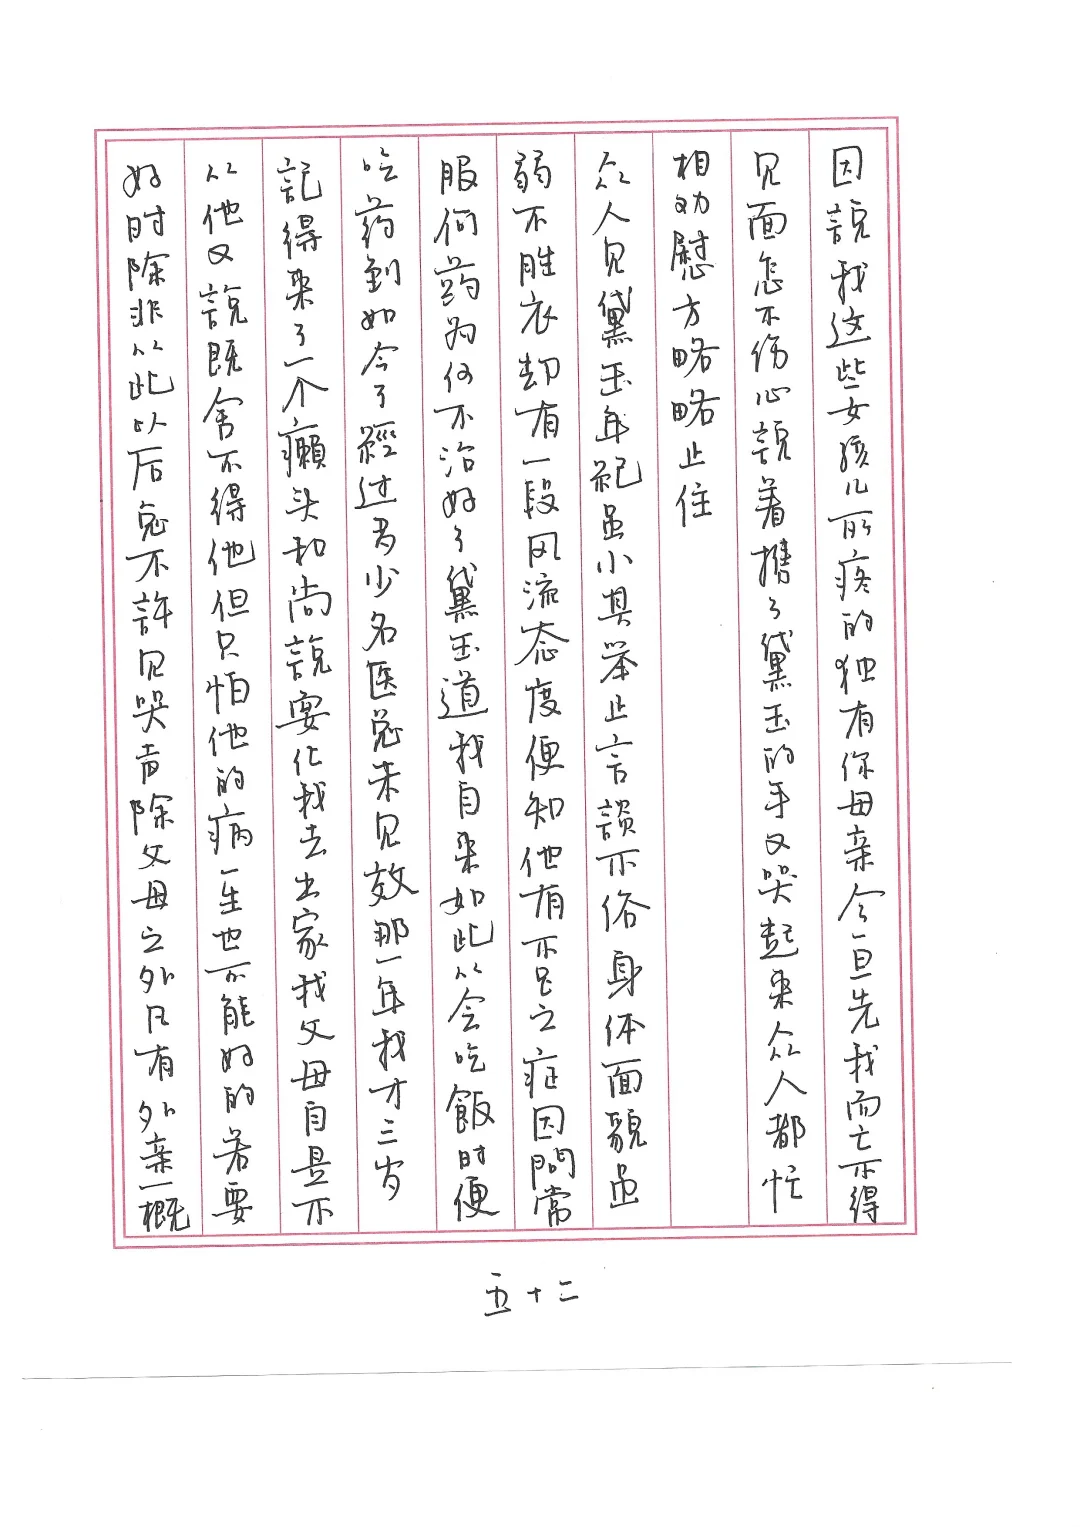 因說我这些女孩儿所疼的独有你母亲今一旦先我而亡不得
见面怎不伤心說着携了黛玉的手又哭起来众人都忙
相劝慰方略略止住
众人见黛玉年紀虽小其举止言談不俗身体面貌虽
弱不胜衣却有一段风流态度便知他有不足之症因問常
服何药为何不治好了黛玉道我自来如此从会吃飯时便
吃药到如今了經过多少名医总未见效那一年我才三岁
記得来了一个癩头和尚說要化我去出家我父母自是不
从他又說既舍不得他但只怕他的病一生也不能好的若要
好时除非从此以后总不許见哭声除父母之外凡有外亲一概
五十二